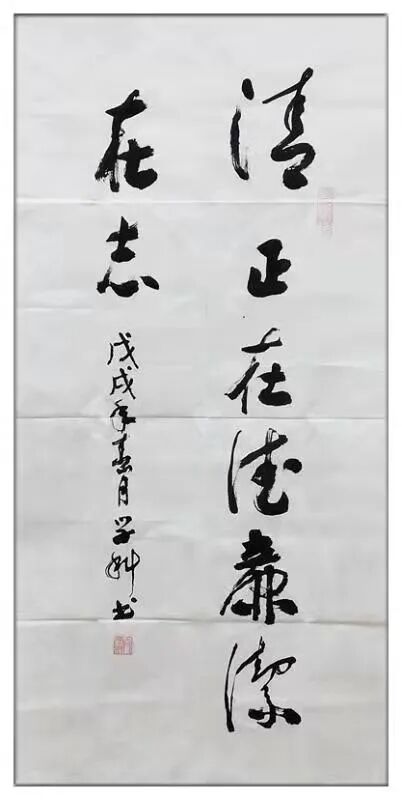 清正在德廉洁
在志
戊戌年春月学科书